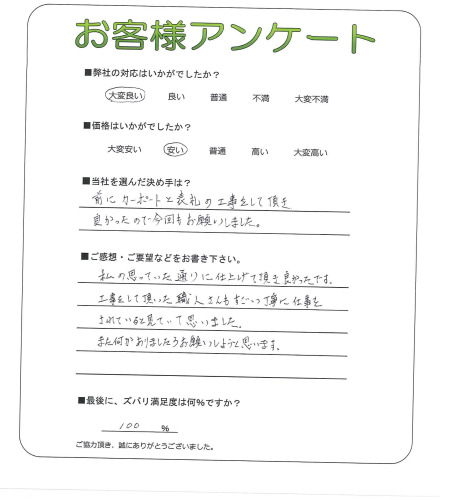 お客様アンケート
■弊社の対応はいかがでしたか？
大変良い　良い　普通　不満　大変不満
■価格はいかがでしたか？
大変安い　安い　普通　高い　大変高い
■当社を選んだ決め手は？
前にカーポートと表札の工事をして頂き
良かったので今回もお願いしました。
■ご感想・ご要望などをお書き下さい。
私の思っていた通りに仕上げて頂き良かったです。
工事をして頂いた職人さんもすごい丁寧に仕事を
されていると見ていて思いました。
また何かありましたらお願いしようと思います。
■最後に、ズバリ満足度は何％ですか？
100　％
ご協力頂き、誠にありがとうございました。